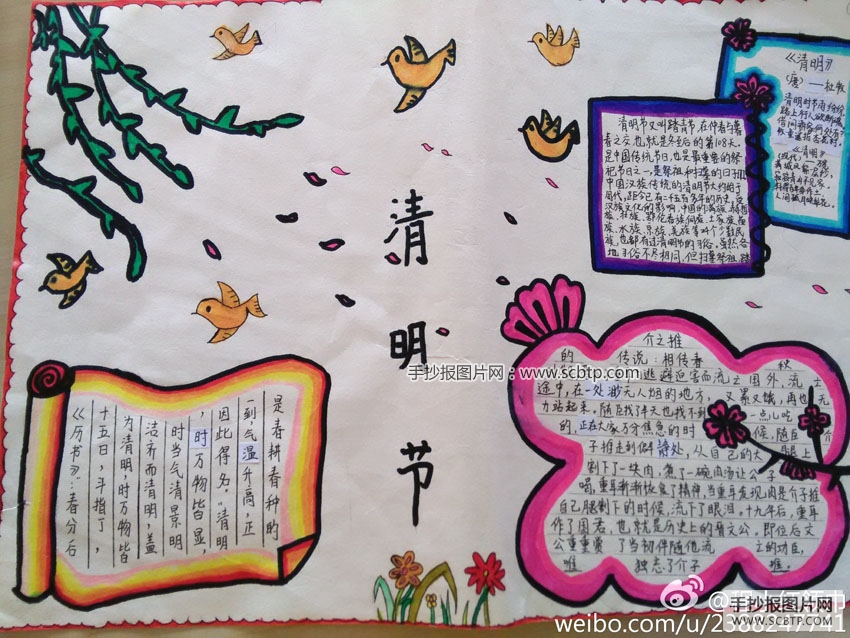 清
明
节
《清明》
(唐)——杜牧
清明时节雨纷纷,
路上行人欲断魂。
借问酒家何处有?
牧童遥指杏花村。
《清明》
清明节又叫踏青节,在仲春与暮
春之交,也就是冬至后的第108天。
是中国传统节日,也是最重要的祭
祀节日之一,是祭祖和扫墓的日子。
中国汉族传统的清明节大约始于
周代,距今已有二千五百多年的历史。受
汉族文化的影响,中国的满族、赫哲
族、壮族、鄂伦春族、侗族、土家族、苗
族、水族、京族、羌族等24个少数民
族,也都有过清明节的习俗。虽然各
地习俗不尽相同,但扫墓祭祖、踏
手抄报图片网:www.scbtp.com
《历书》:春分后
十五日,斗指丁,
为清明,时万物皆
洁齐而清明,盖
时当气清景明
,时万物皆显,
因此得名。“清明
一到,气温升高,正
是春耕春种的
介之推
的 传说:相传春 秋
逃避迫害而流亡国外,流亡
途中,在一处渺无人烟的地方,又累又饿,再也无
力站起来。随臣找了半天也找不到一点儿吃
的,正在大家万分焦急的时 候,随臣
子推走到僻静处,从自己的大 腿上
割下了一块肉,煮了一碗肉汤让公子
喝,重耳渐渐恢复了精神,当重耳发现肉是介子推
自己腿割下的时候,流下了眼泪。十九年后,重耳
作了国君,也就是历史上的晋文公。即位后文
公重重赏 了当初伴随他流 之的功臣,
唯 独忘了介子 推。
weibo.com/u/2388247741
手抄报图片网
WWW.SCBTP.COM